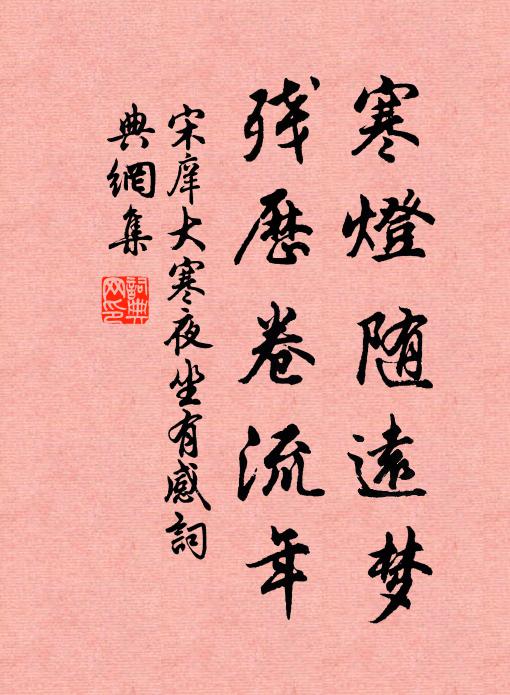 寒燈随遠梦
残歷卷流年
宋庠大寒夜坐有感詞
典網集
詞典
网印